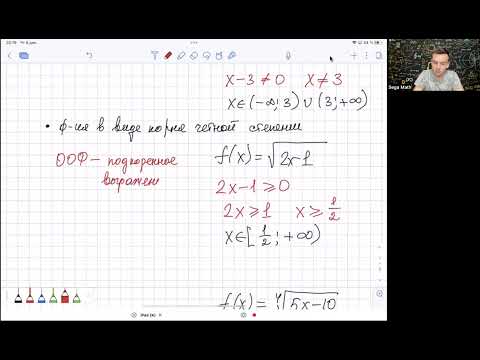 20:19 Чт 6 дек.
x-3≠0 x≠3
x∈(-∞; 3) ∪ (3; +∞)
• ф-ия в виде корня четной степени
ООФ – подкоренное
выражен
f(x) = √2x-1
2x-1 ⩾ 0
2x ⩾ 1 x ⩾ 1/2
x∈[1/2; +∞)
f(x) = ⁴√5x-10
Sega Math